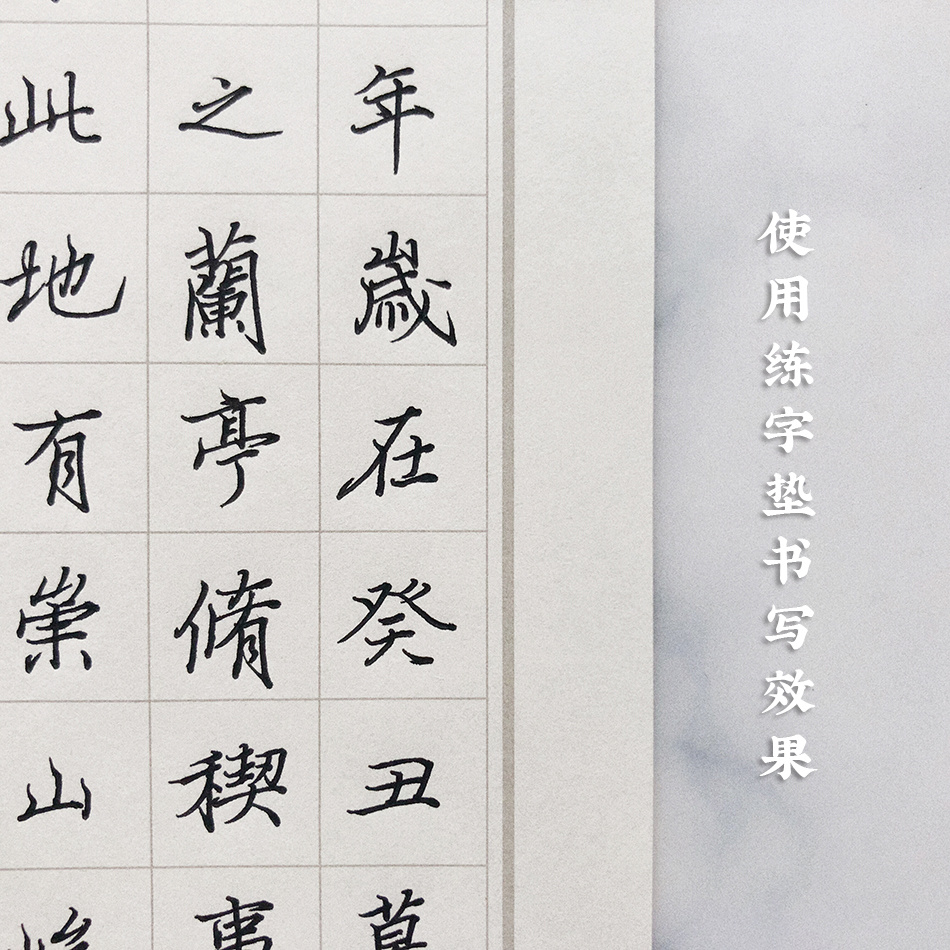 使用练字垫书写效果
年歲在癸丑
之蘭亭脩稧事
此地有崇山